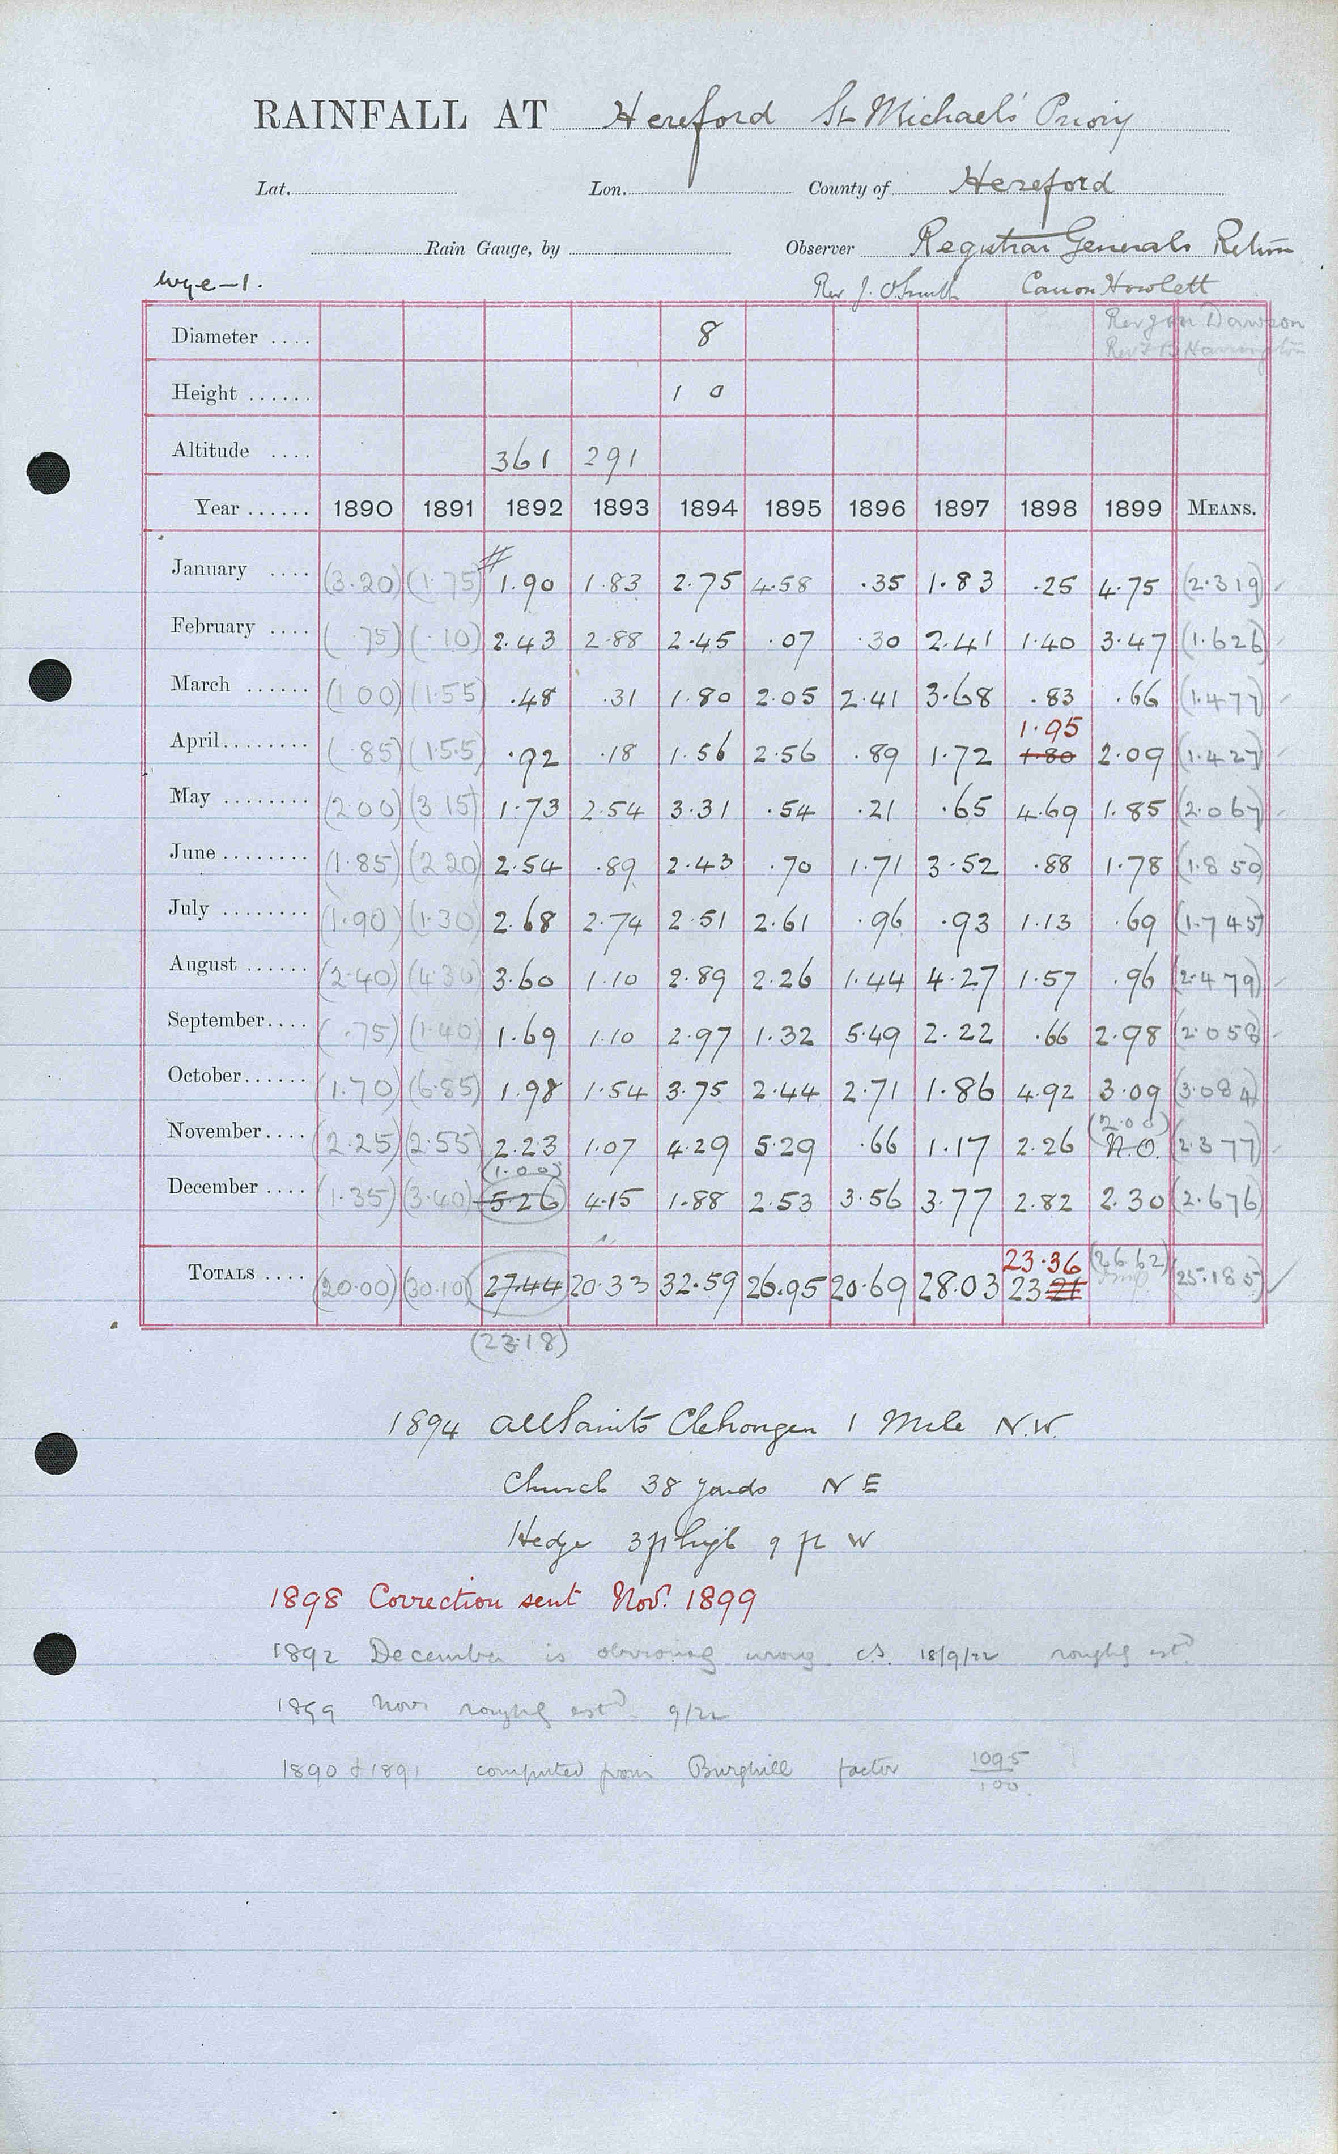 RAINFALL AT Hereford St Michael's Priory
Lat. Lon. County of Hereford
Rain Gauge, by Observer Registrar Generals Return
Wye-1. Rev J. O. Smith Canon Howlett
Dawson
Diameter .... 8 Harrington
Height ...... 1 0
Altitude .... 361 291
Year ...... 1890 1891 1892 1893 1894 1895 1896 1897 1898 1899 MEANS.
January .... (3.20) (1.75) # 1.90 1.83 2.75 4.58 .35 1.83 .25 4.75 (2.319)
February .... (.75) (.10) 2.43 2.88 2.45 .07 .30 2.41 1.40 3.47 (1.626)
March ...... (1 00) (1.55) .48 .31 1.80 2.05 2.41 3.68 .83 .66 (1.477)
1.95
April........ (.85) (1.55) .92 .18 1.56 2.56 .89 1.72 1.80 2.09 (1.427)
May ........ (2 00) (3 15) 1.73 2.54 3.31 .54 .21 .65 4.69 1.85 (2.067)
June ........ (1.85) (2 20) 2.54 .89 2.43 .70 1.71 3.52 .88 1.78 (1.850)
July ........ (1.90) (1.30) 2.68 2.74 2.51 2.61 .96 .93 1.13 .69 (1.745)
August ...... (2.40) (4 30) 3.60 1.10 2.89 2.26 1.44 4.27 1.57 .96 (2.479)
September.... (.75) (1.40) 1.69 1.10 2.97 1.32 5.49 2.22 .66 2.98 (2.058)
October...... (1.70) (6.85) 1.98 1.54 3.75 2.44 2.71 1.86 4.92 3.09 (3.084)
(2.00)
November.... (2.25) (2.55) 2.23 1.07 4.29 5.29 .66 1.17 2.26 n.o. (2.377)
(1.00)
December .... (1.35) (3.40) 5.26 4.15 1.88 2.53 3.56 3.77 2.82 2.30 (2.676)
23.36 (26.62)
TOTALS .... (20.00) (30.10) 27.44 20.33 32.59 26.95 20.69 28.03 23 21 (25.185)
(23.18)
1894 All Saints Clehonger 1 Mile N.W.
Church 38 yards N E
Hedge 3 ft high 9 ft W
1898 Correction sent Nov. 1899
1892 December is obviously wrong. 18/9/22 roughly estd.
1899 Nov. roughly estd. 9/22
1890 & 1891 computed from Burghill factor 1095
100